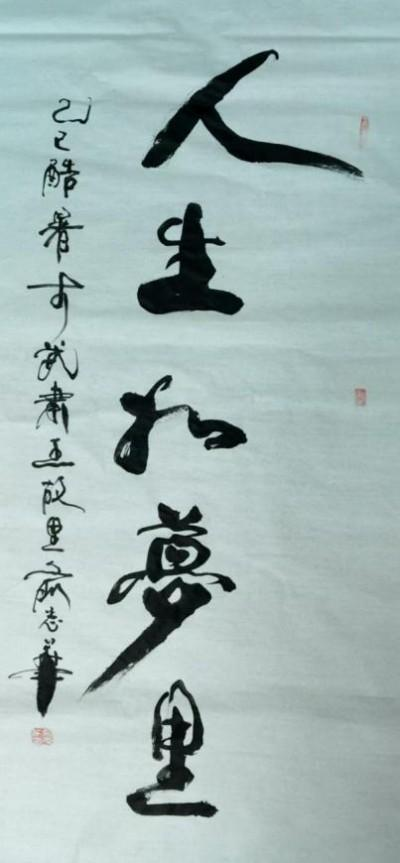 人生如夢里
己巳酷暑于武肅王故里俞志華